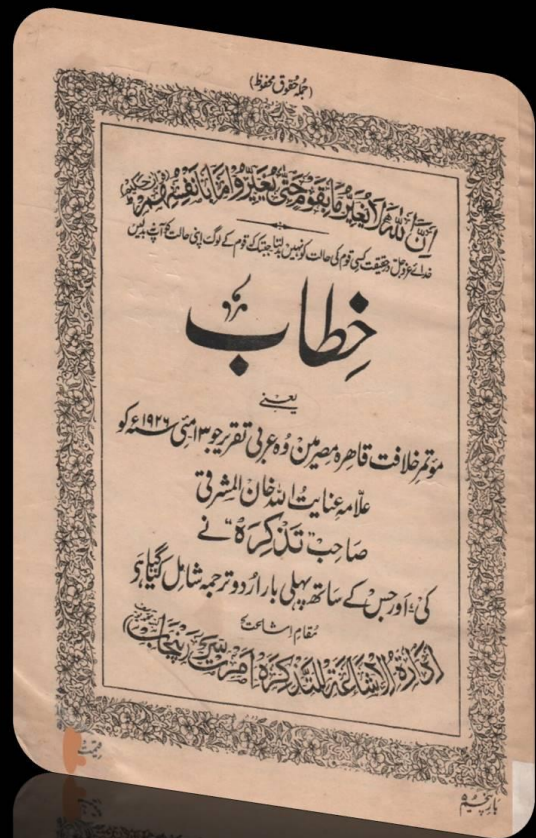 (جملہ حقوق محفوظ)
اِنَّ اللّٰہَ لَا یُغَیِّرُ مَا بِقَوْمٍ حَتّٰی یُغَیِّرُوْا مَا بِاَنْفُسِہِمْ
خدائے عزوجل درحقیقت کسی قوم کی حالت کو نہیں بدلتا جب تک قوم کے لوگ اپنی حالت کو آپ نہ بدلیں
خِطاب
یعنے
مؤتمر خلافت قاہرہ مصر مین وُہ عربی تقریر جو ۱۳ مئی ۱۹۲۶ء کو
علّامہ عنایت اللہ خان المشرقی
صاحب "تذکرہ" نے
کی، اور جس کے ساتھ پہلی بار اُردو ترجمہ شامل کیا گیا ہَو
مقامِ اشاعت
اِدَارَۃُ الْاِشَاعَۃِ لِلتَّذْکِرَہ امرت سر پنجاب
قیمت
بار پنجم